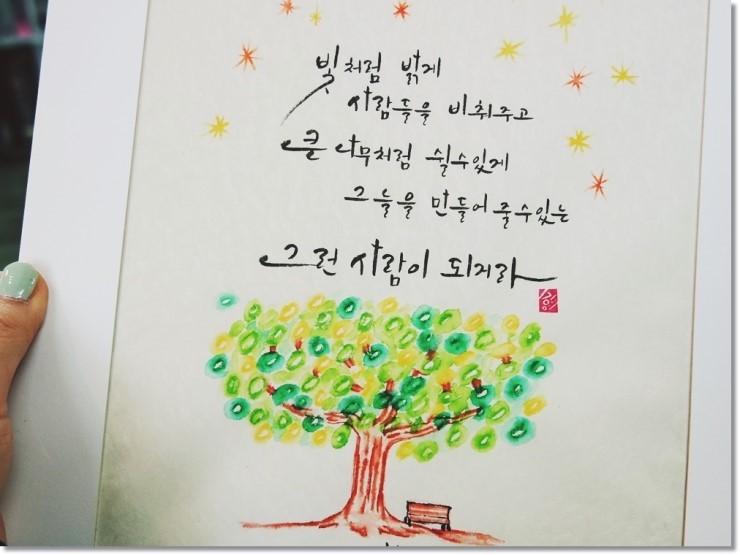 빛처럼 밝게
사람들을 비춰주고
큰 나무처럼 쉴수있게
그늘을 만들어 줄수있는
그런 사람이 되거라